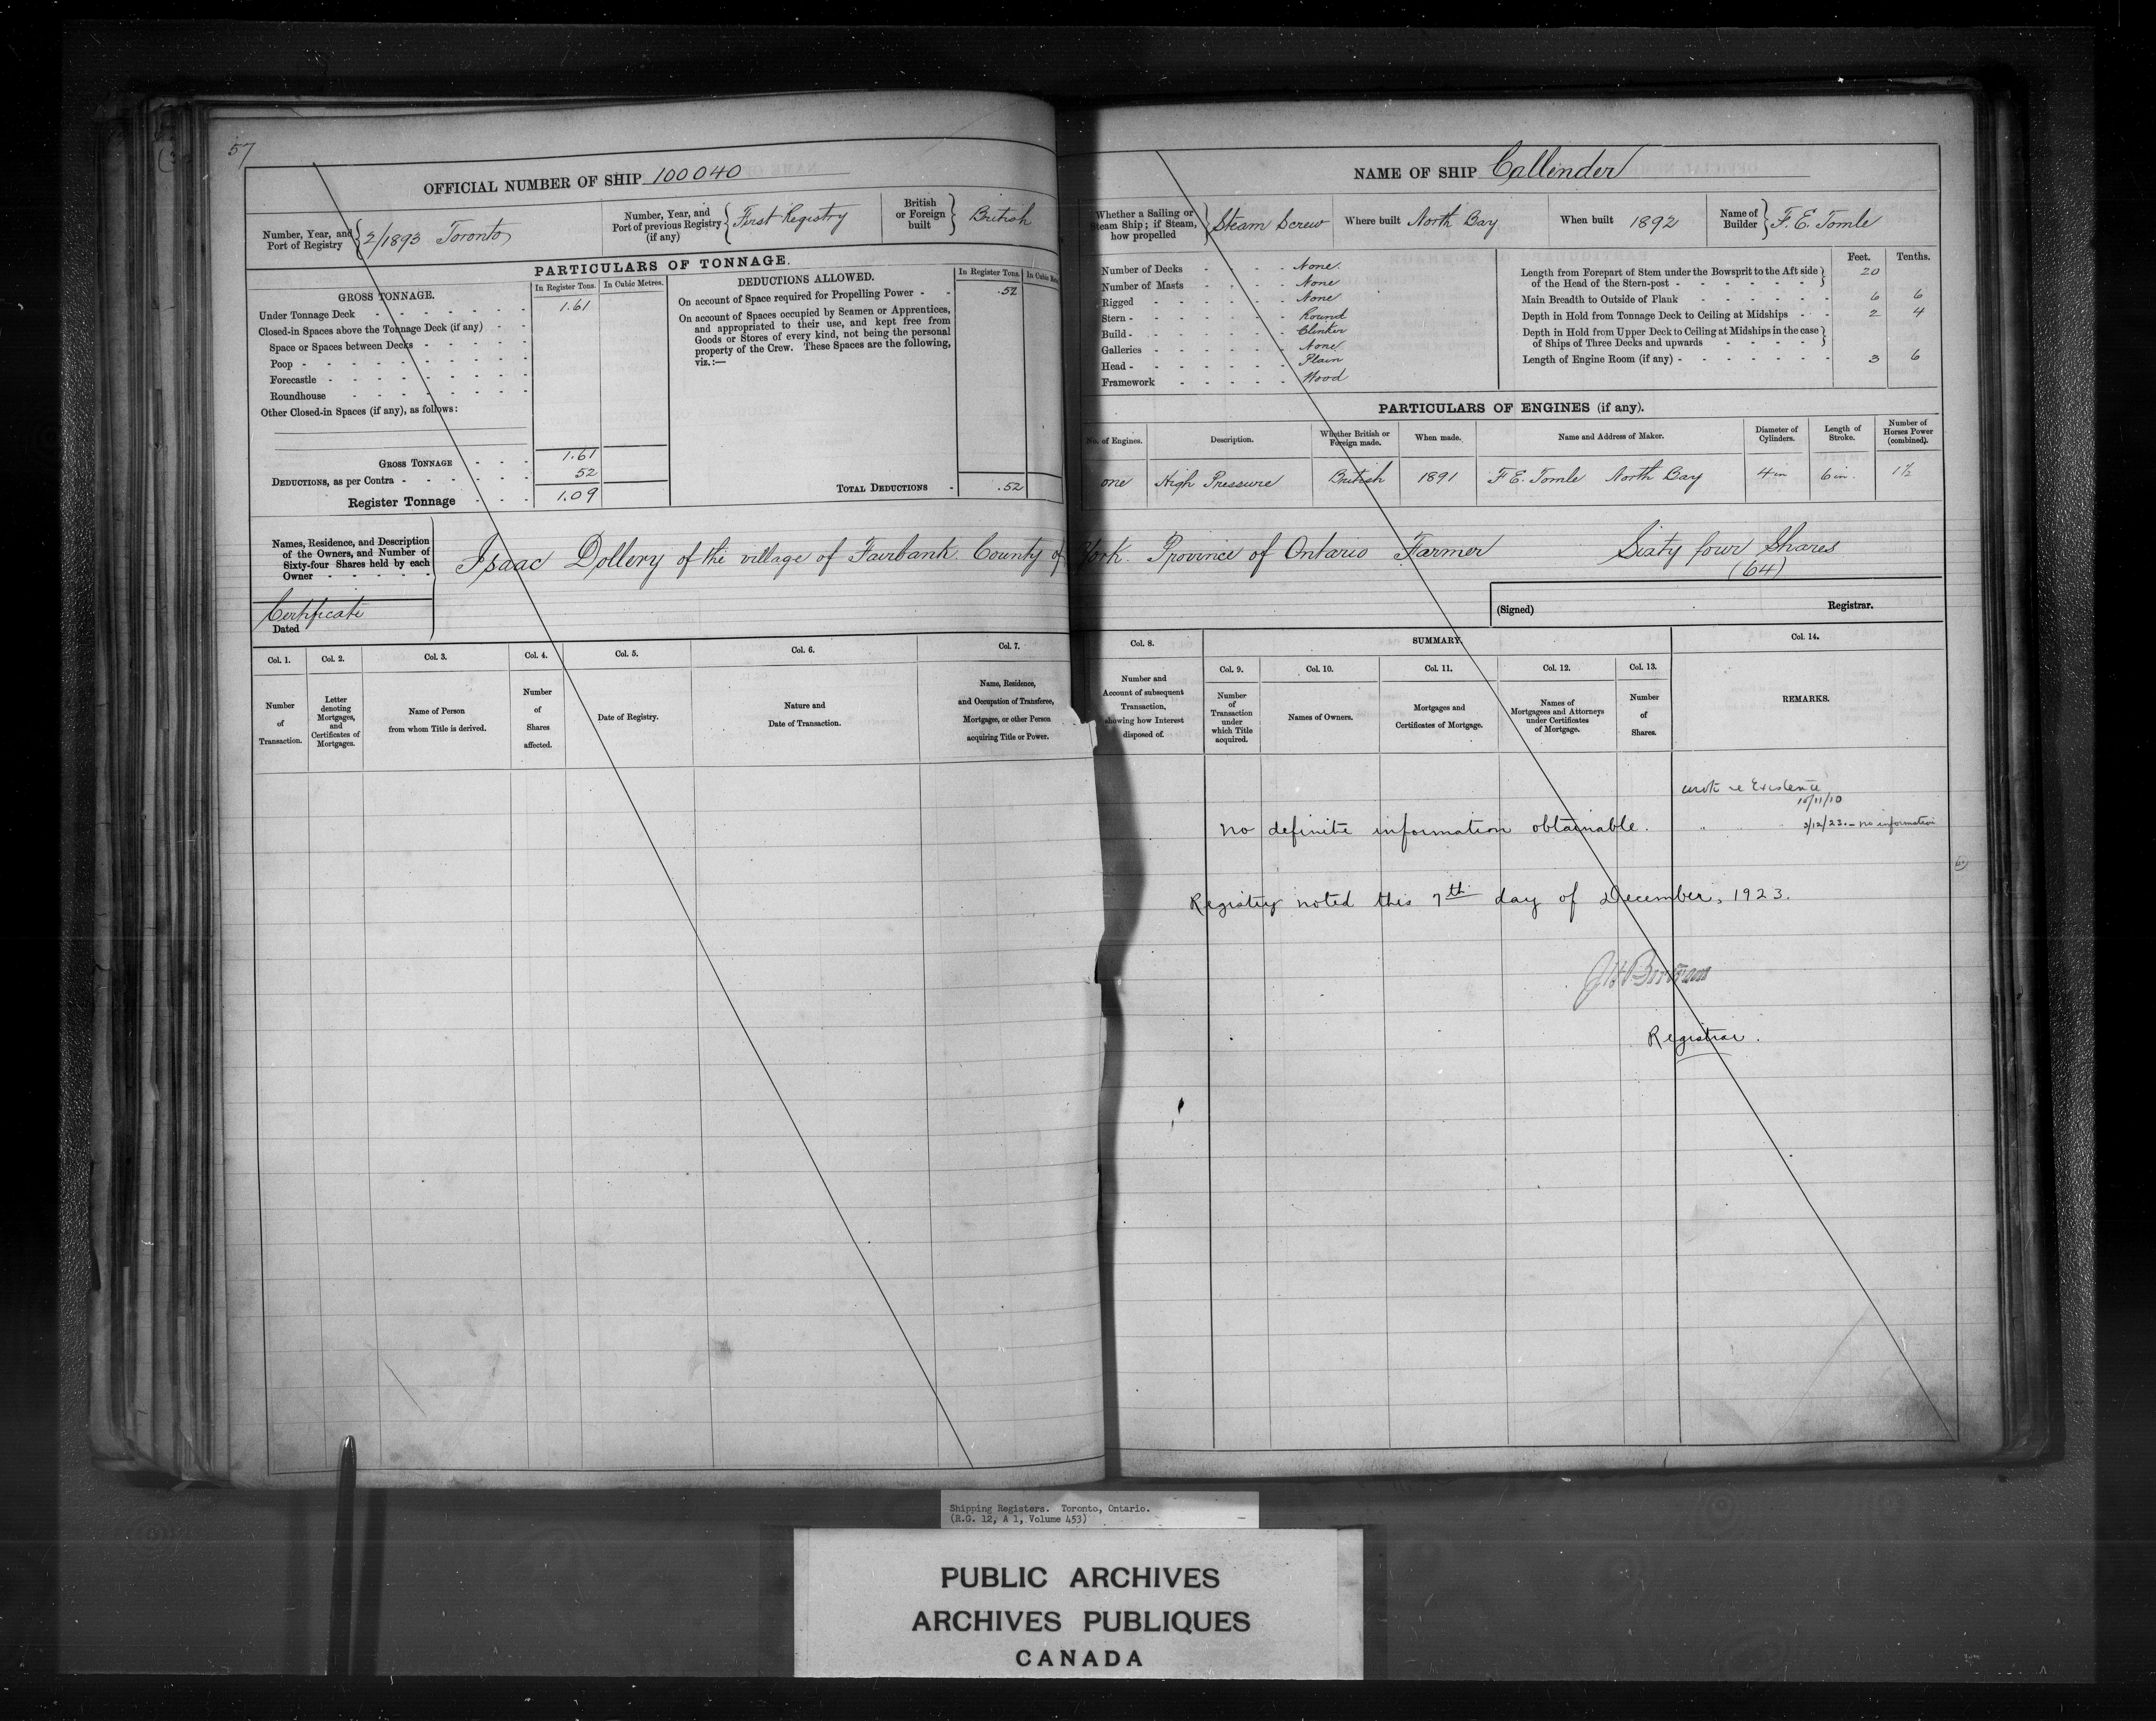 57
OFFICIAL NUMBER OF SHIP 100040
Number, Year, and Port of Registry 2/1893 Toronto
Number, Year, and Port of previous Registry (if any) First Registry
British or Foreign built British
PARTICULARS OF TONNAGE.
GROSS TONNAGE.
In Register Tons.
In Cubic Metres.
Under Tonnage Deck 1.61
Closed-in Spaces above the Tonnage Deck (if any)
Space or Spaces between Decks
Poop
Forecastle
Roundhouse
Other Closed-in Spaces (if any), as follows:
GROSS TONNAGE 1.61
DEDUCTIONS, as per Contra 52
Register Tonnage 1.09
DEDUCTIONS ALLOWED.
In Register Tons.
In Cubic Me
On account of Space required for Propelling Power .52
On account of Spaces occupied by Seamen or Apprentices,
and appropriated to their use, and kept free from
Goods or Stores of every kind, not being the personal
property of the Crew. These Spaces are the following,
viz.:—
TOTAL DEDUCTIONS .52
NAME OF SHIP Callender
Whether a Sailing or Steam Ship; if Steam, how propelled Steam Screw
Where built North Bay
When built 1892
Name of Builder F. E. Tomle
Number of Decks None.
Number of Masts None
Rigged None
Stern Round
Build Clinker
Galleries None
Head Plain
Framework Wood
Feet. Tenths.
Length from Forepart of Stem under the Bowsprit to the Aft side
of the Head of the Stern-post 20
Main Breadth to Outside of Plank 6 6
Depth in Hold from Tonnage Deck to Ceiling at Midships 2 4
Depth in Hold from Upper Deck to Ceiling at Midships in the case
of Ships of Three Decks and upwards
Length of Engine Room (if any) 3 6
PARTICULARS OF ENGINES (if any).
No. of Engines.
Description.
Whether British or Foreign made.
When made.
Name and Address of Maker.
Diameter of Cylinders.
Length of Stroke.
Number of Horses Power (combined).
one High Pressure British 1891 F E. Tomle North Bay 4 in 6 in. 1½
Names, Residence, and Description
of the Owners, and Number of
Sixty-four Shares held by each
Owner
Isaac Dollery of the village of Fairbank. County of York. Province of Ontario Farmer Sixty four Shares
(64)
Certificate
Dated
(Signed) Registrar.
Col. 1.
Number of Transaction.
Col. 2.
Letter denoting Mortgages, and Certificates of Mortgages.
Col. 3.
Name of Person from whom Title is derived.
Col. 4.
Number of Shares affected.
Col. 5.
Date of Registry.
Col. 6.
Nature and Date of Transaction.
Col. 7.
Name, Residence, and Occupation of Transferee, Mortgagee, or other Person acquiring Title or Power.
Col. 8.
Number and Account of subsequent Transaction, showing how Interest disposed of.
SUMMARY.
Col. 9.
Number of Transaction under which Title acquired.
Col. 10.
Names of Owners.
Col. 11.
Mortgages and Certificates of Mortgage.
Col. 12.
Names of Mortgagees and Attorneys under Certificates of Mortgage.
Col. 13.
Number of Shares.
Col. 14.
REMARKS.
wrote re Existence
10/11/10
" " " 3/12/23. – no information
No definite information obtainable.
Registry noted this 7th day of December, 1923.
Registrar.
Shipping Registers. Toronto, Ontario.
(R.G. 12, A 1, Volume 453)
PUBLIC ARCHIVES
ARCHIVES PUBLIQUES
CANADA